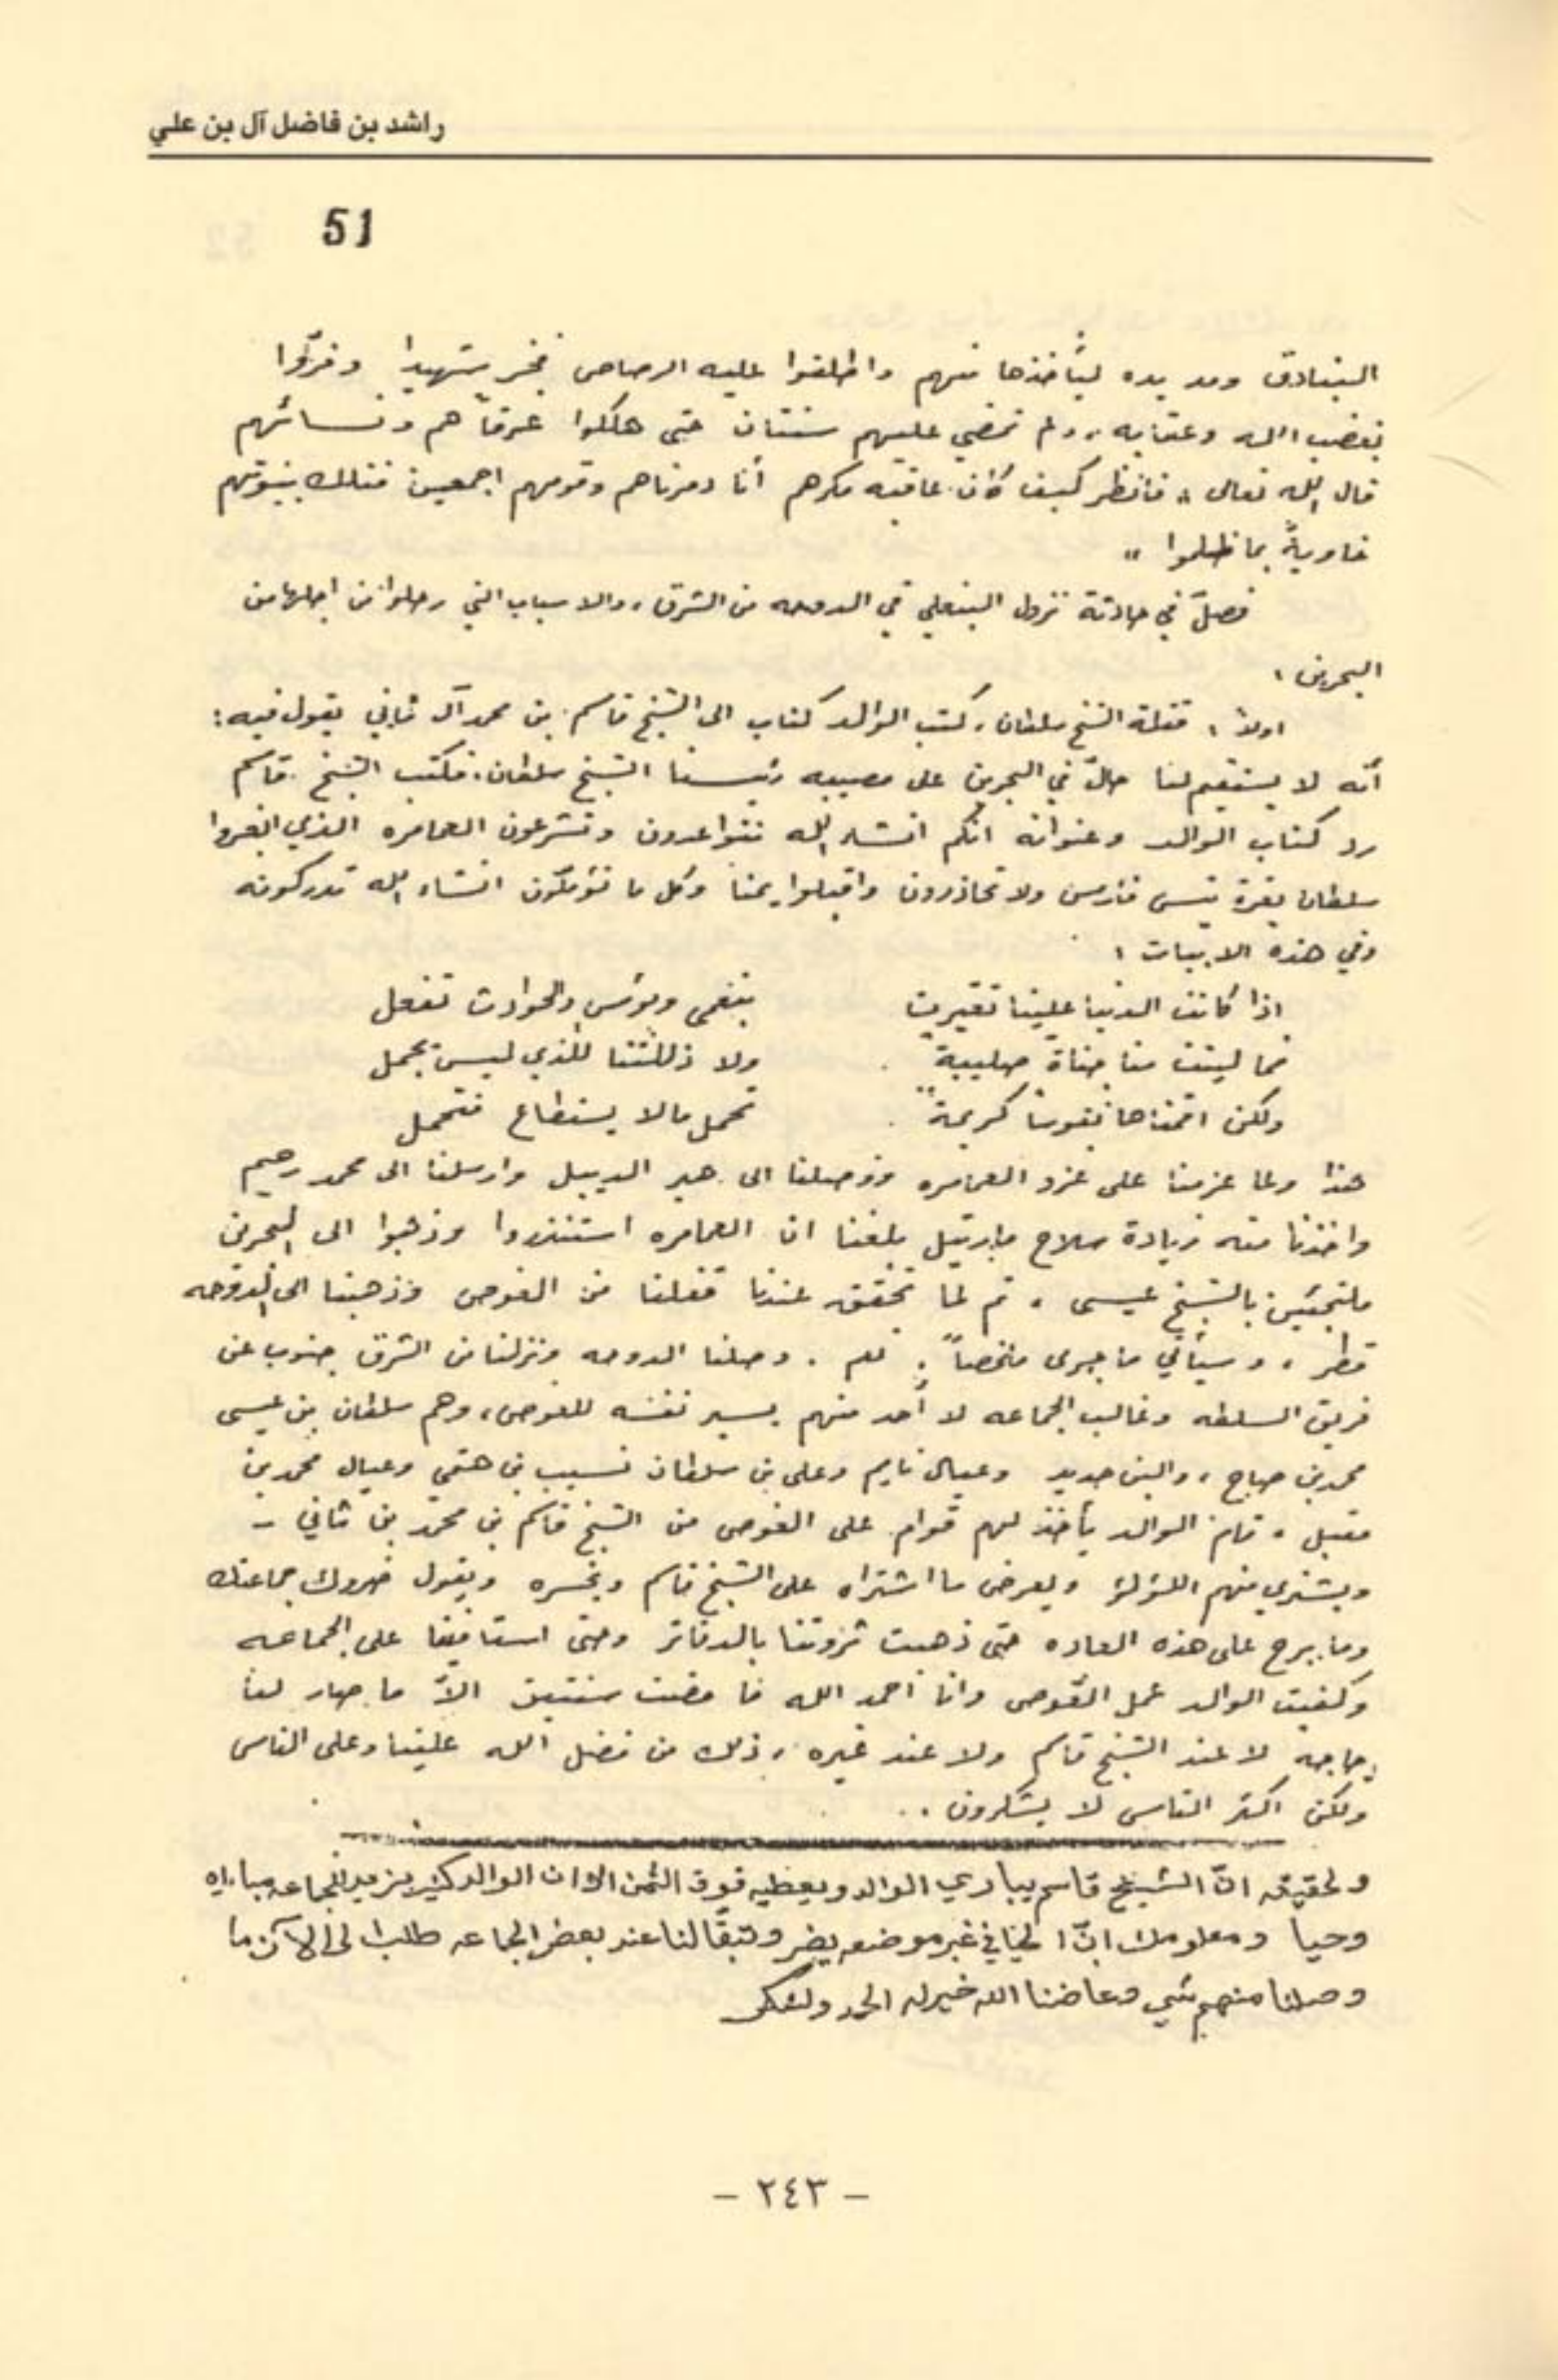 راشد بن فاضل آل بن علي
51
البنادق ومد يده ليأخذها منهم واطلقوا عليه الرصاص فخر شهيدا وفرّوا
بغضب الله وعقابه، ولم تمضي عليهم سنتان حتى هلكوا غرقاً هم ونسائهم
قال الله تعالى « فانظر كيف كان عاقبة مكرهم أنا دمرناهم وقومهم اجمعين فتلك بيوتهم
خاويةً بما ظلموا »
فصلٌ في حادثة نزول البنعلي في الدوحه من الشرق، والاسباب التي رحلوا من اجلها من
البحرين،
اولاً، قتلة الشيخ سلطان، كتب الوالد كتاب الى الشيخ قاسم بن محمد آل ثاني يقول فيه:
أنه لا يستقيم لنا حالٌ في البحرين على مصيبه رئيسنا الشيخ سلطان، فكتب الشيخ قاسم
رد كتاب الوالد وعنوانه انكم انشاء الله تتواعدون وتشرعون العمامره الذي
سلطان بقرة تيس فارس ولا تحاذرون واقبلوا يمنا وكل ما تؤملون انشاء الله تدركونه
وفي هذه الابيات،
اذا كانت الدنيا علينا تغيرت بنعمى وبؤس والحوادث تفعل
فما لينت منا قناة صليبةً ولا ذللتنا للذي ليس يجمل
ولكن اقمناها نفوساً كريمةً تحمل مالا يستطاع فتحمل
هذا ولما عزمنا على غزو العمامره ووصلنا الى هير الديبل وارسلنا الى محمد رحيم
واخذنا منه زيادة سلاح مارتيل بلغنا ان العمامره استنذروا وذهبوا الى البحرين
ملتجئين بالشيخ عيسى، ثم لما تحقق عندنا قفلنا من الغوص وذهبنا الى الدوحه
قطر، وسيأتي ما جرى ملخصاً. نعم. وصلنا الدوحه ونزلنا من الشرق جنوب عن
فريق السلطه وغالب الجماعه لا أحد منهم يسير نفسه للغوص، وهم سلطان بن عيسى
محمد بن صباح، والبن حديد وعيال نايم وعلى بن سلطان نسيب بن هتمي وعيال محمد بن
مقبل، قام الوالد يأخذ لهم قوام على الغوص من الشيخ قاسم بن محمد بن ثاني -
ويشتري منهم اللؤلؤ ويعرض ما اشتراه على الشيخ قاسم ويخسره ويقول ضروك جماعتك
وما برح على هذه العاده حتى ذهبت ثروتنا بالدفاتر وحتى استافيفا على الجماعه
وكفيت الوالد عمل الغوص وانا أحمد الله فا مضت سنتين الاّ ما صار لنا
حاجه لا عند الشيخ قاسم ولا عند غيره، ذلك من فضل الله علينا وعلى الناس
ولكن اكثر الناس لا يشكرون..
ولحقيقه انّ الشيخ قاسم يباري الوالد ويعطيه فوق الثمن الا ان الوالد كثير يزيد لجماعه مباراه
وحيا ومعلومك انّ الحيا في غير موضعه يضر وتبقّا لنا عند بعض الجماعه طلب الى الآن ما
وصلنا منهم شي وعاضنا الله خير له الحمد ولشكر
– ٢٤٣ –